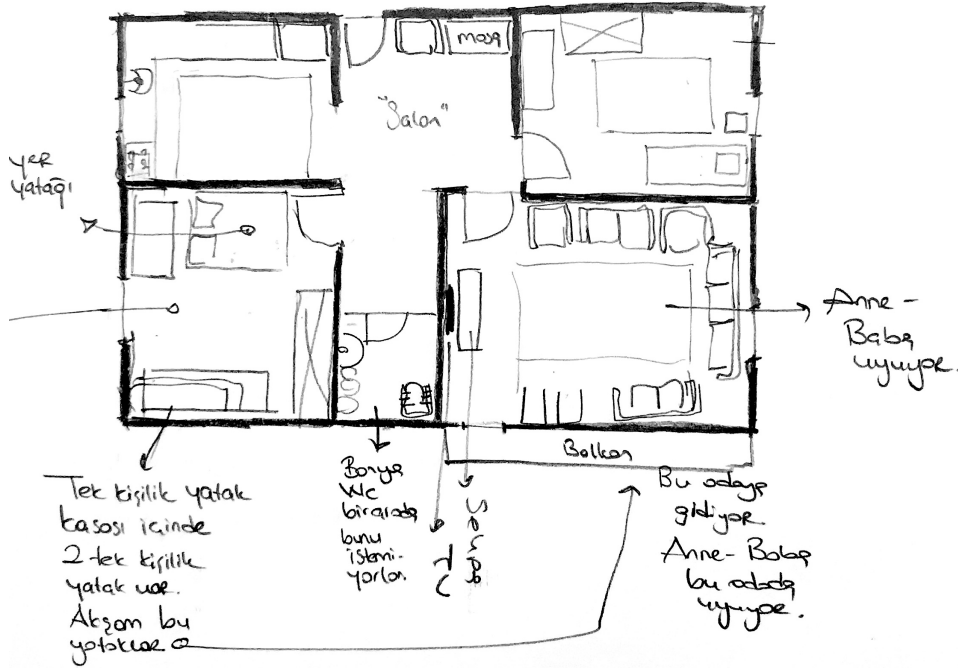 masa
"Salon"
yer
yatağı
Anne -
Baba
uyuyor.
Balkon
Tek kişilik yatak
kasası içinde
2 tek kişilik
yatak var.
Akşam bu
yataklar
Banyo
WC
birarada
bunu
istemi-
yorlar.
Sehpa
TV
Bu odaya
gidiyor
Anne - Baba
bu odada
uyuyor.